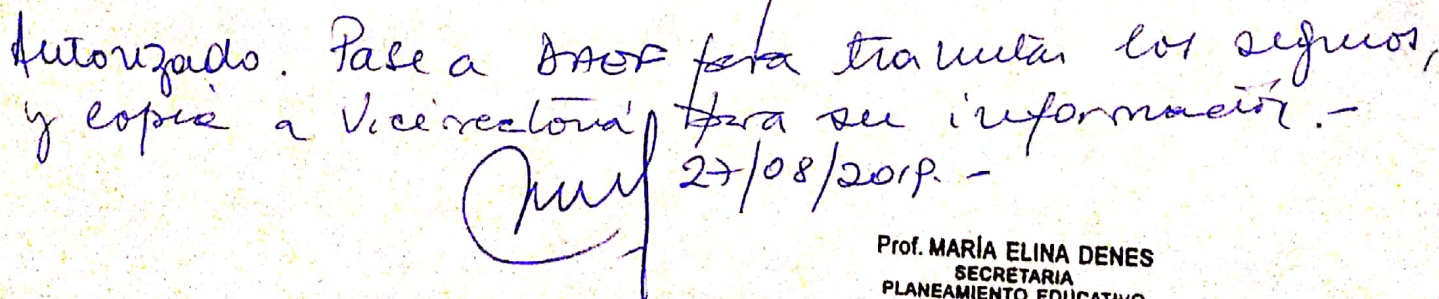 Autorizado. Pase a DAEF para tramitar los seguros,
y copia a Vicerrectoría para su información.-
27/08/2019.-
Prof. MARÍA ELINA DENES
SECRETARIA
PLANEAMIENTO EDUCATIVO